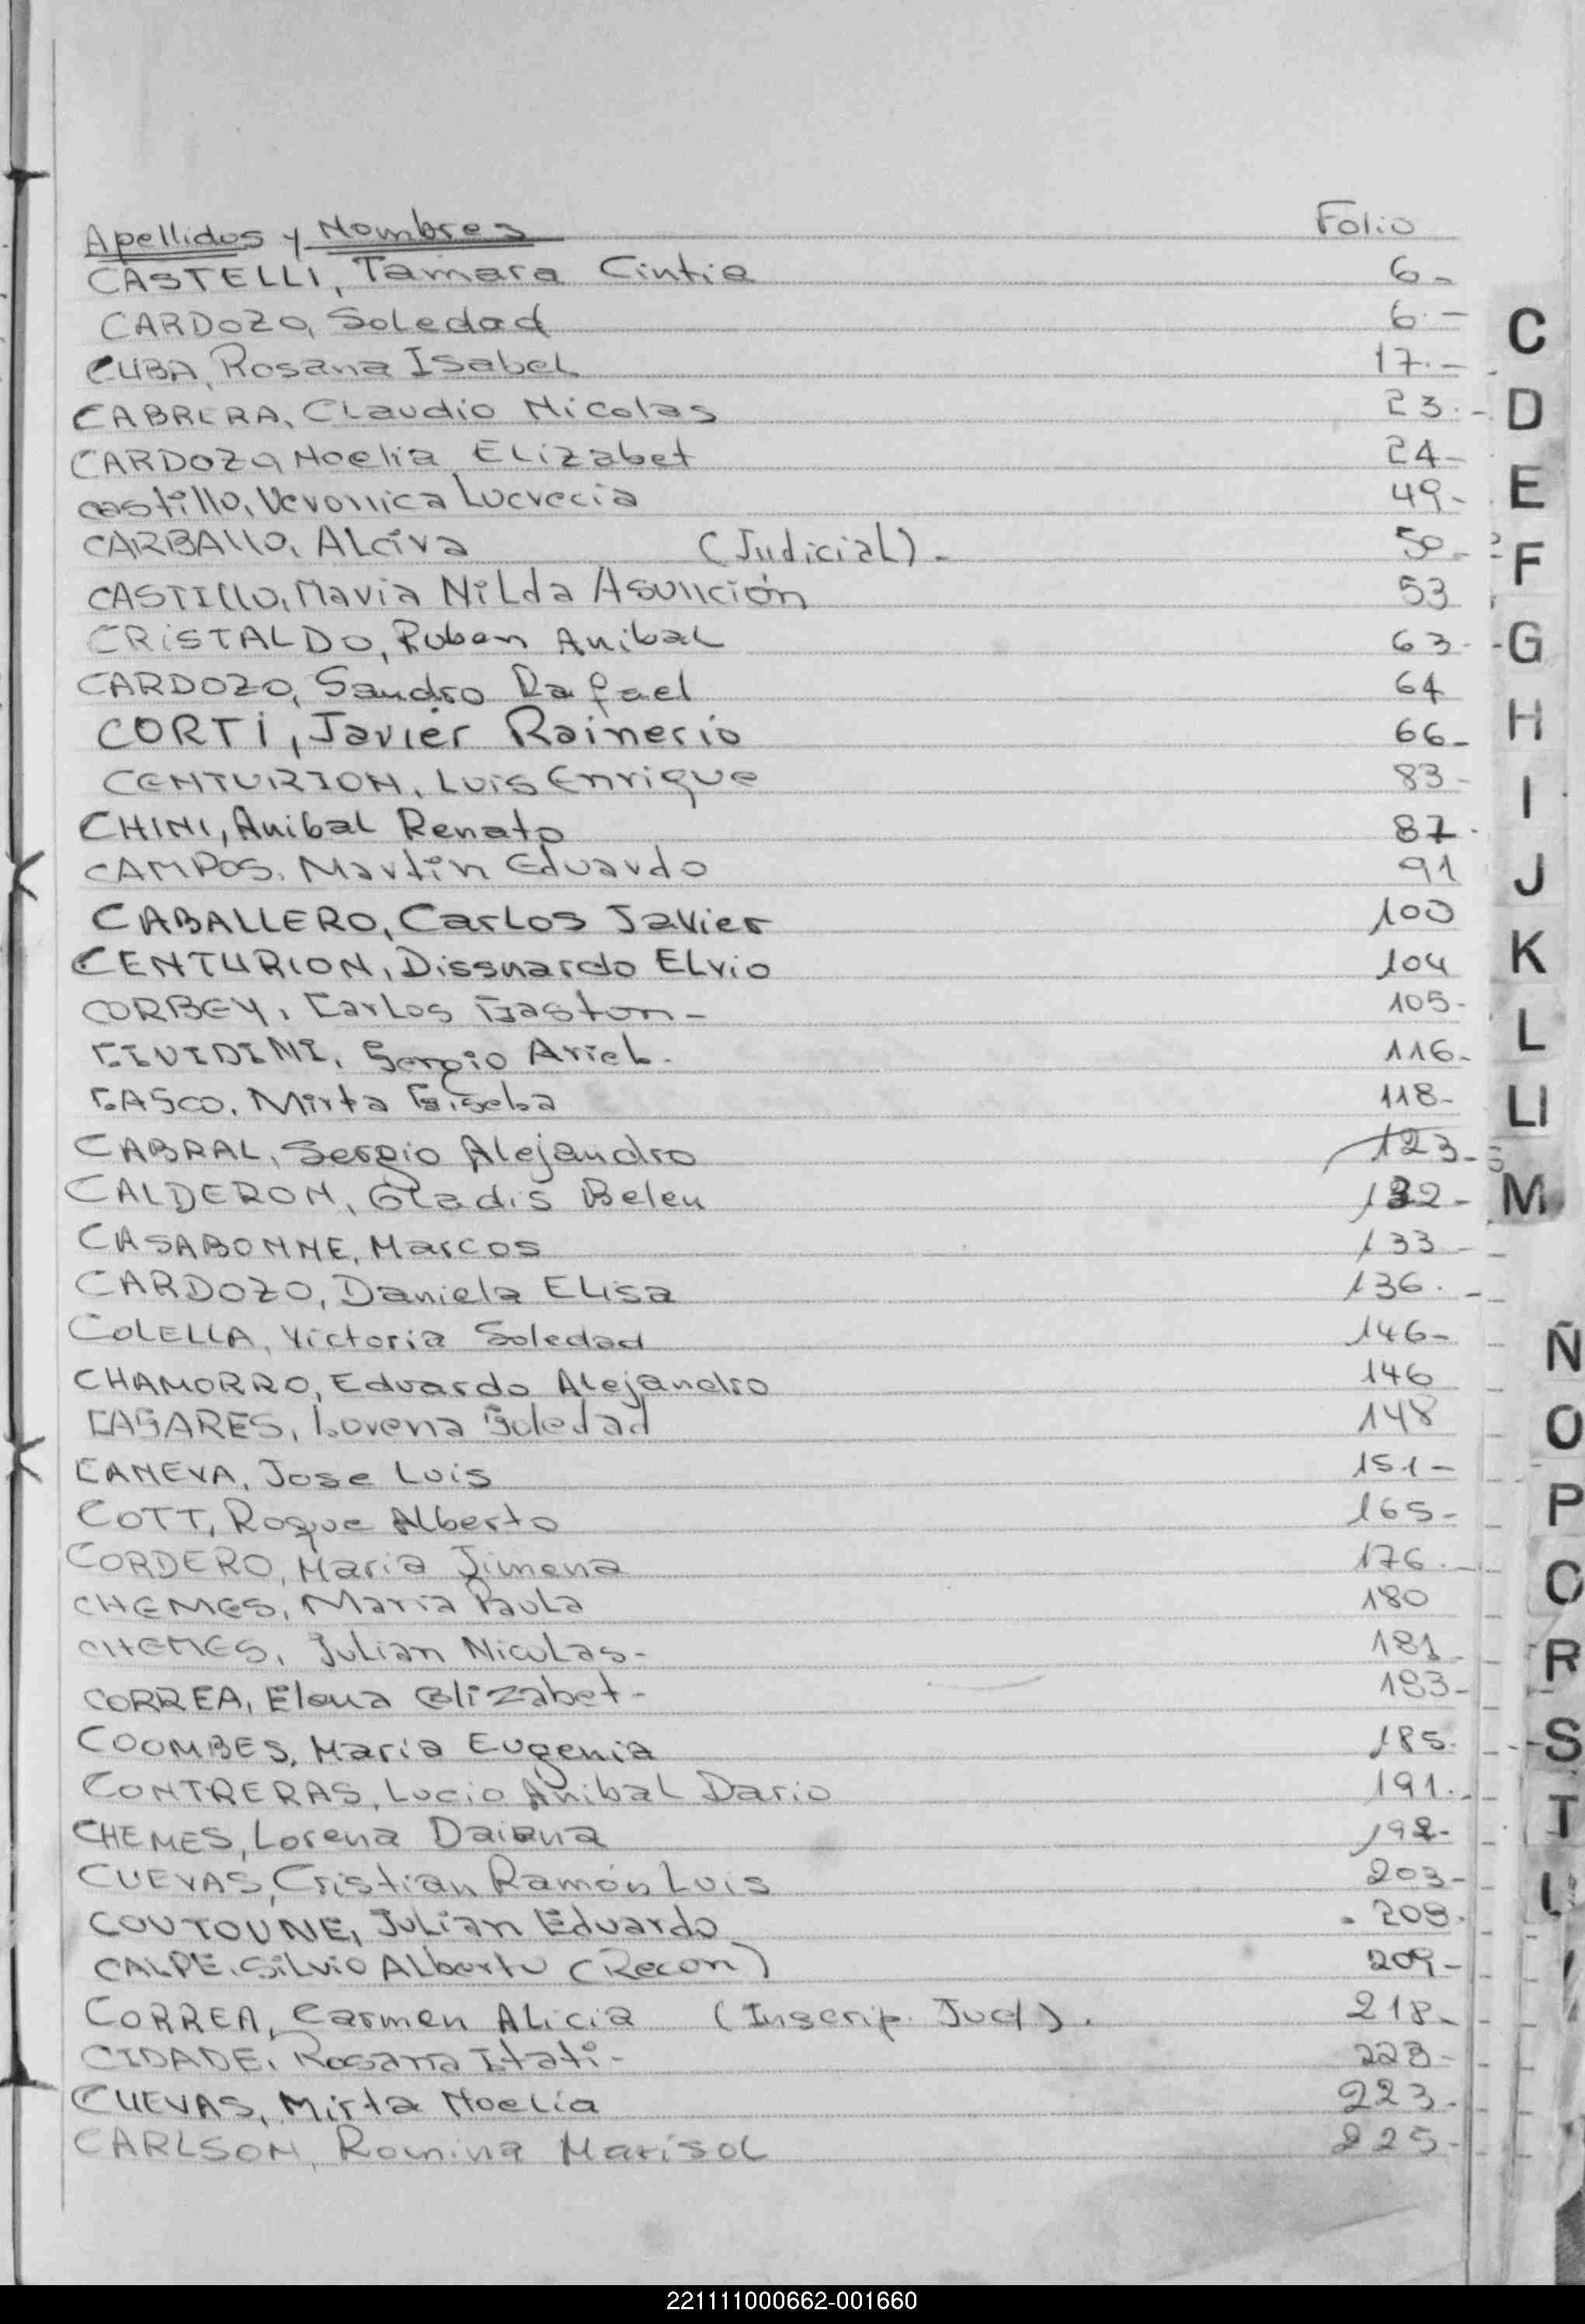 Apellidos y Nombres Folio
CASTELLI, Tamara Cintia 6-
CARDOZO, Soledad 6.-
CUBA, Rosana Isabel 17.-
CABRERA, Claudio Nicolas 23.-
CARDOZO Noelia Elizabet 24-
castillo, Veronica Lucrecia 49-
CARBAllO, Alciva (Judicial).- 50.-
CASTIllO, Maria Nilda Asunción 53
CRiSTALDO, Ruben Anibal 63-
CARDOZO, Sandro Rafael 64
CORTi, Javier Rainerio 66-
CENTURION, Luis Enrique 83-
CHINI, Anibal Renato 87.
CAMPOS, Martin Eduardo 91
CABALLERO, Carlos Javier 100
CENTURION, Dissnardo Elvio 104
CORBEY, Carlos Gaston- 105-
CIVIDINI, Sergio Ariel. 116-
CASCO, Mirta Gisela 118-
CABRAL, Sergio Alejandro 123-
CALDERON, Gladis Belen 132-
CASABONNE, Marcos 133-
CARDOZO, Daniela Elisa 136.-
COLELLA, Victoria Soledad 146-
CHAMORRO, Eduardo Alejandro 146
CASARES, Lorena Soledad 148
CANEVA, Jose Luis 151-
COTT, Roque Alberto 165-
CORDERO, Maria Jimena 176.-
CHEMES, Maria Paula 180
CHEMES, Julian Nicolas- 181-
CORREA, Elena Elizabet- 183-
COOMBES, Maria Eugenia 185.
CONTRERAS, Lucio Anibal Dario 191.-
CHEMES, Lorena Daiana 192-
CUEVAS, Cristian Ramón Luis 203-
COUTOUNE, Julian Eduardo 208.
CALPE, Silvio Alberto (Recon) 209-
CORREA, Carmen Alicia (Inscrip. Jud). 218-
CIDADE, Rosana Itati- 223-
CUEVAS, Mirta Noelia 223.
CARLSON, Romina Marisol 225-
C
D
E
F
G
H
I
J
K
L
Ll
M
Ñ
O
P
R
S
T
221111000662-001660